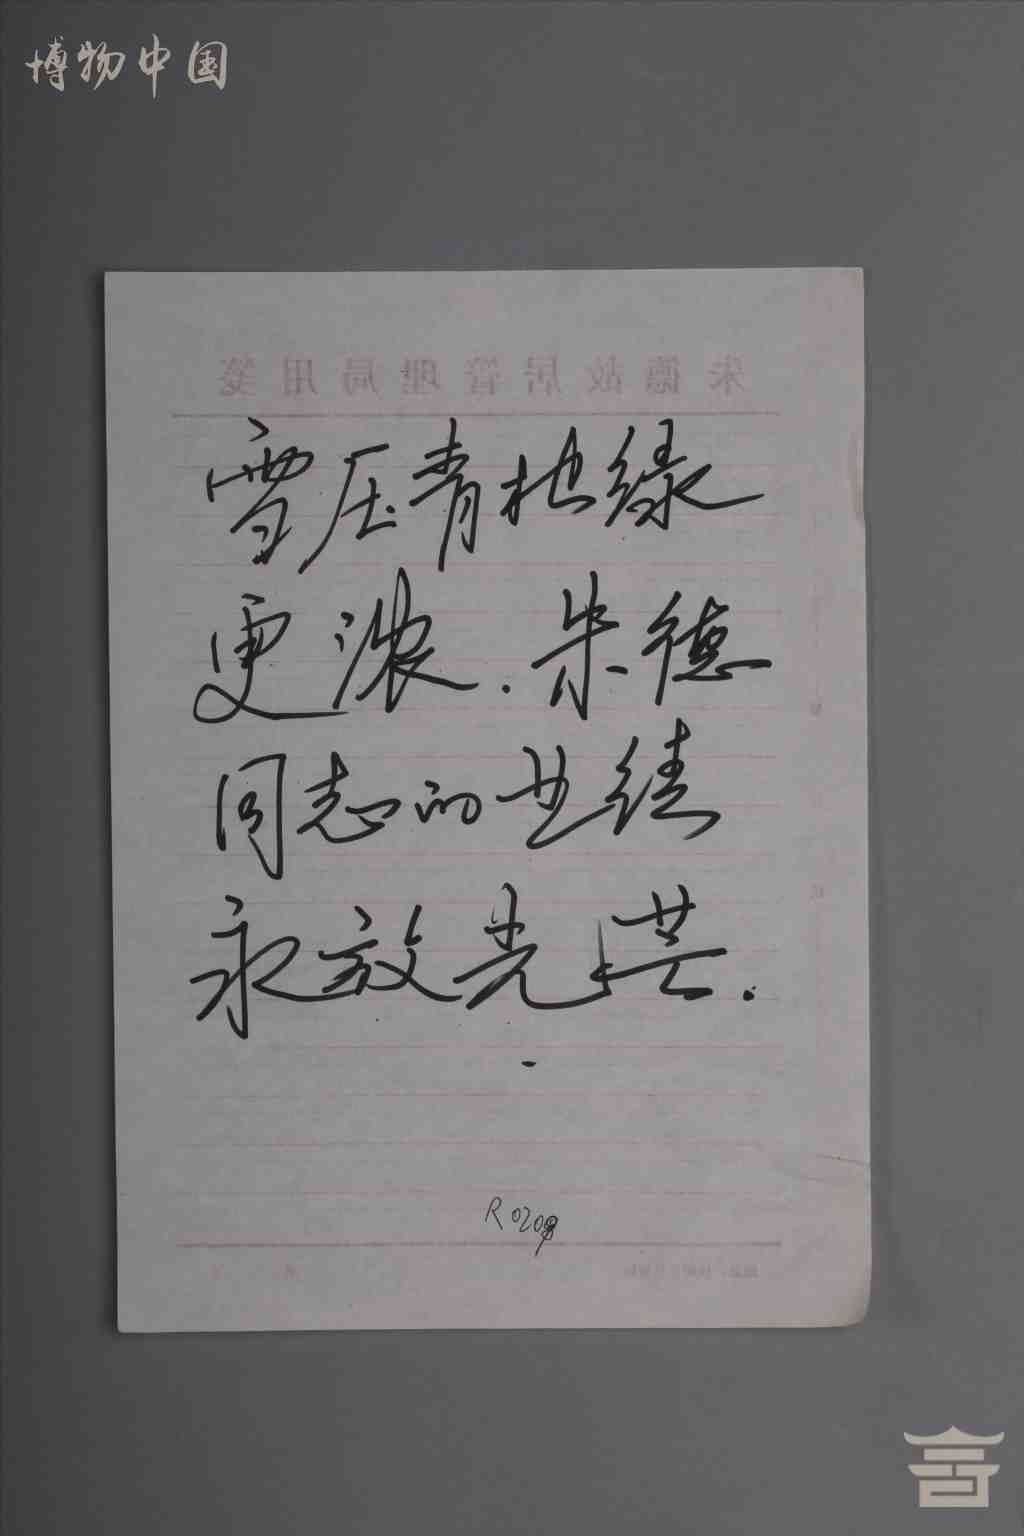 博物中国
朱德故居管理局用笺
雪压青松绿
更浓.朱德
同志的业绩
永放光芒.
R0209